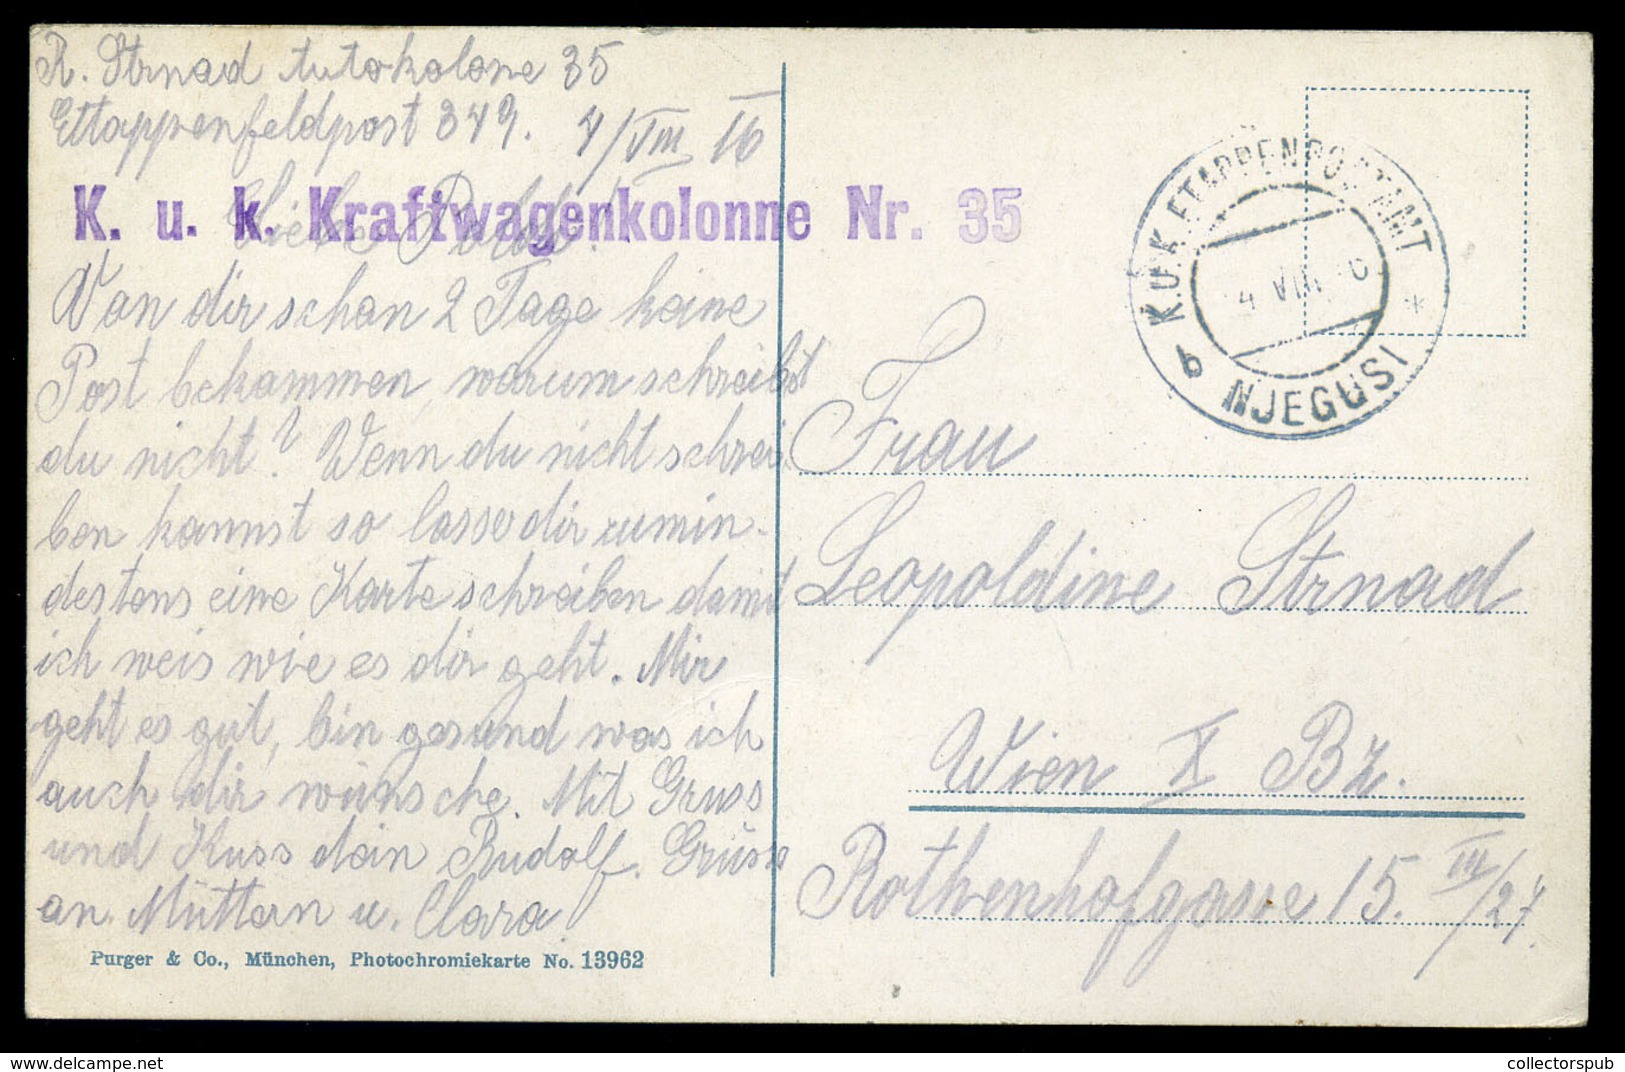 R. Strnad Autokolone 35
Ettappenfeldpost 349. 4/VIII 16
K. u. k. Kraftwagenkolonne Nr. 35
Liebe Poldi!
Von dir schon 2 Tage keine
Post bekommen, warum schreibst
du nicht? Wenn du nicht schrei-
ben kannst so lasse dir zumin-
destens eine Karte schreiben damit
ich weis wie es dir geht. Mir
geht es gut, bin gesund was ich
auch dir wünsche. Mit Gruss
und Kuss dein Rudolf. Grüsse
an Muttern u. Clara.
Purger & Co., München, Photochromiekarte No. 13962
K.U.K. ETAPPENPOSTAMT
4 VIII 16
b NJEGUSI *
Frau
Leopoldine Strnad
Wien X Bz.
Rothenhofgasse 15. III/27.
collectorspub